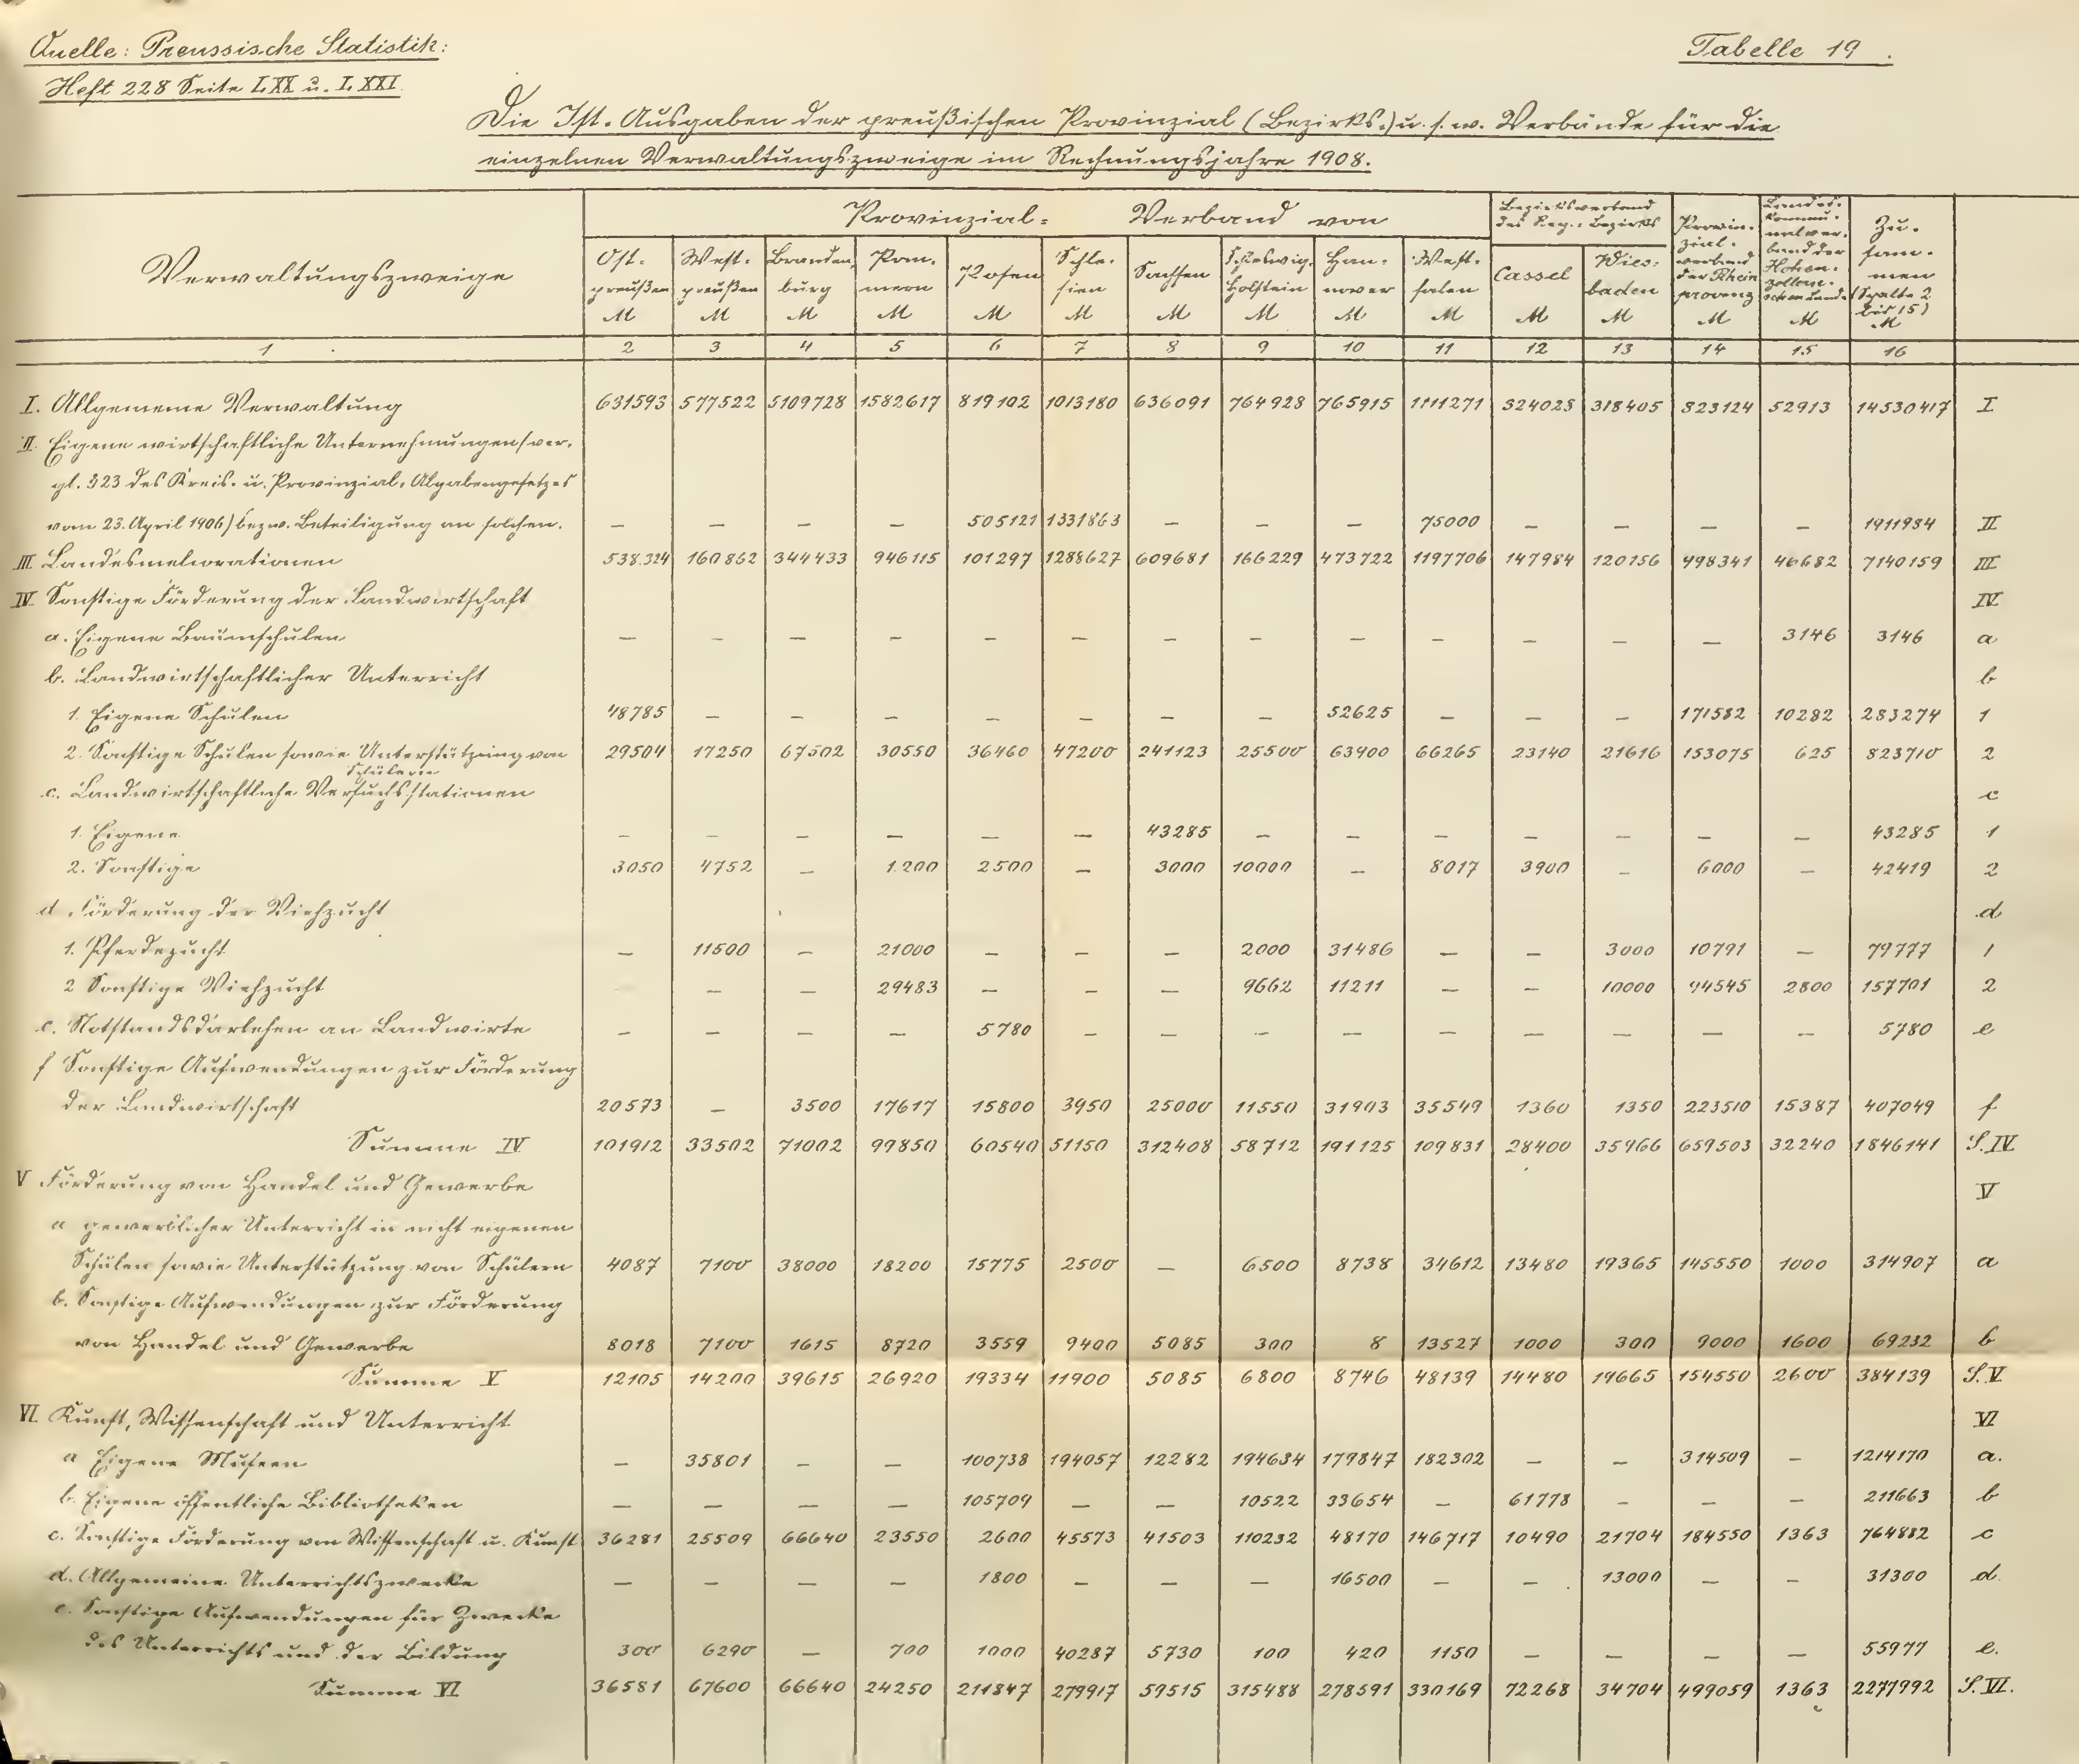 Quelle: Preussische Statistik:
Heft 228 Seite LXX u. LXXI.
Tabelle 19.
Die Ist-Ausgaben der preußischen Provinzial (Bezirks-) u. s. w. Verbände für die
einzelnen Verwaltungszweige im Rechnungsjahre 1908.
Verwaltungszweige
Provinzial- Verband von
Bezirksverband des Reg.-Bezirks
Ost-preußen M
West-preußen M
Branden-burg M
Pom-mern M
Posen M
Schle-sien M
Sachsen M
Schleswig-Holstein M
Han-nover M
West-falen M
Cassel M
Wies-baden M
Provin-zial-verband der Rheinprovinz M
Landes-kommu-nalver-band der Hohen-zollern-schen Lande M
Zu-sam-men (Spalte 2 bis 15) M
1 2 3 4 5 6 7 8 9 10 11 12 13 14 15 16
I. Allgemeine Verwaltung 631593 577522 5109728 1582617 819102 1013180 636091 764928 765915 1111271 324028 318405 823124 52913 14530417 I
II. Eigene wirtschaftliche Unternehmungen (ver-
gl. §23 des Kreis- u. Provinzial-Abgabengesetzes
vom 23. April 1906) bezw. Beteiligung an solchen. — — — — 505121 1331863 — — — 75000 — — — — 1911984 II
III Landesmeliorationen 538324 160862 344433 946115 101297 1288627 609681 166229 473722 1197706 147984 120156 498341 46682 7140159 III
IV. Sonstige Förderung der Landwirtschaft IV.
a. Eigene Baumschulen — — — — — — — — — — — — — 3146 3146 a
b. Landwirtschaftlicher Unterricht b
1. Eigene Schulen 48785 — — — — — — — 52625 — — — 171582 10282 283274 1
2. Sonstige Schulen sowie Unterstützung von Schülern 29504 17250 67502 30550 36460 47200 241123 25500 63900 66265 23140 21616 153075 625 823710 2
c. Landwirtschaftliche Versuchsstationen c
1. Eigene — — — — — — 43285 — — — — — — — 43285 1
2. Sonstige 3050 4752 — 1200 2500 — 3000 10000 — 8017 3900 — 6000 — 42419 2
d. Förderung der Viehzucht d
1. Pferdezucht — 11500 — 21000 — — — 2000 31486 — — 3000 10791 — 79777 1
2 Sonstige Viehzucht — — 29483 — — — 9662 11211 — — 10000 94545 2800 157701 2
e. Notstandsdarlehen an Landwirte — — — — 5780 — — — — — — — — — 5780 e
f Sonstige Aufwendungen zur Förderung
der Landwirtschaft 20573 — 3500 17617 15800 3950 25000 11550 31903 35549 1360 1350 223510 15387 407049 f
Summe IV 101912 33502 71002 99850 60540 51150 312408 58712 191125 109831 28400 35966 659503 32240 1846141 S. IV.
V Förderung von Handel und Gewerbe V
a gewerblicher Unterricht in nicht eigenen
Schulen sowie Unterstützung von Schülern 4087 7100 38000 18200 15775 2500 — 6500 8738 34612 13480 19365 145550 1000 314907 a
b. Sonstige Aufwendungen zur Förderung
von Handel und Gewerbe 8018 7100 1615 8720 3559 9400 5085 300 8 13527 1000 300 9000 1600 69232 b
Summe V 12105 14200 39615 26920 19334 11900 5085 6800 8746 48139 14480 19665 154550 2600 384139 S. V.
VI. Kunst, Wissenschaft und Unterricht VI
a Eigene Museen — 35801 — — 100738 194057 12282 194634 179847 182302 — — 314509 — 1214170 a.
b. Eigene öffentliche Bibliotheken — — — — 105709 — — 10522 33654 — 61778 — — — 211663 b
c. Sonstige Förderung von Wissenschaft u. Kunst 36281 25509 66640 23550 2600 45573 41503 110232 48170 146717 10490 21704 184550 1363 764882 c
d. Allgemeine Unterrichtszwecke — — — — 1800 — — — 16500 — — 13000 — — 31300 d.
e. Sonstige Aufwendungen für Zwecke
des Unterrichts und der Bildung 300 6290 — 700 1000 40287 5730 100 420 1150 — — — — 55977 e.
Summe VI 36581 67600 66640 24250 211847 279917 59515 315488 278591 330169 72268 34704 499059 1363 2277992 S. VI.